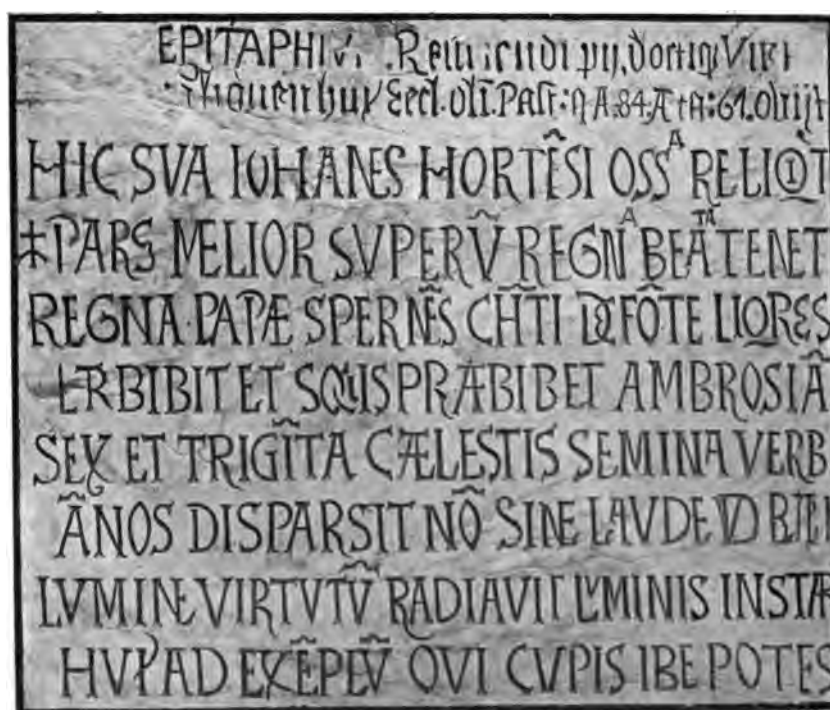 EPITAPHIVM Reverendi pij, doctiqz Viri
Eccl. oli. Past: A.84. Æta: 61. Obijt
HIC SVA IOHANES HORTẼSI OSSA RELIQT
PARS MELIOR SVPERṼ REGNA BEATA TENET
REGNA PAPÆ SPERNẼS CHT̃I DE FÕTE LIQRES
BIBIT ET PRÆBIBET AMBROSIÃ
SEX ET TRIGĨTA CÆLESTIS SEMINA VERB
ÃNOS DISPARSIT NÕ SINE LAVDE
LVMINE VIRTVTṼ RADIAVIT LVMINIS INSTA
HVI9 AD EXẼPLṼ QVI CVPIS POTES